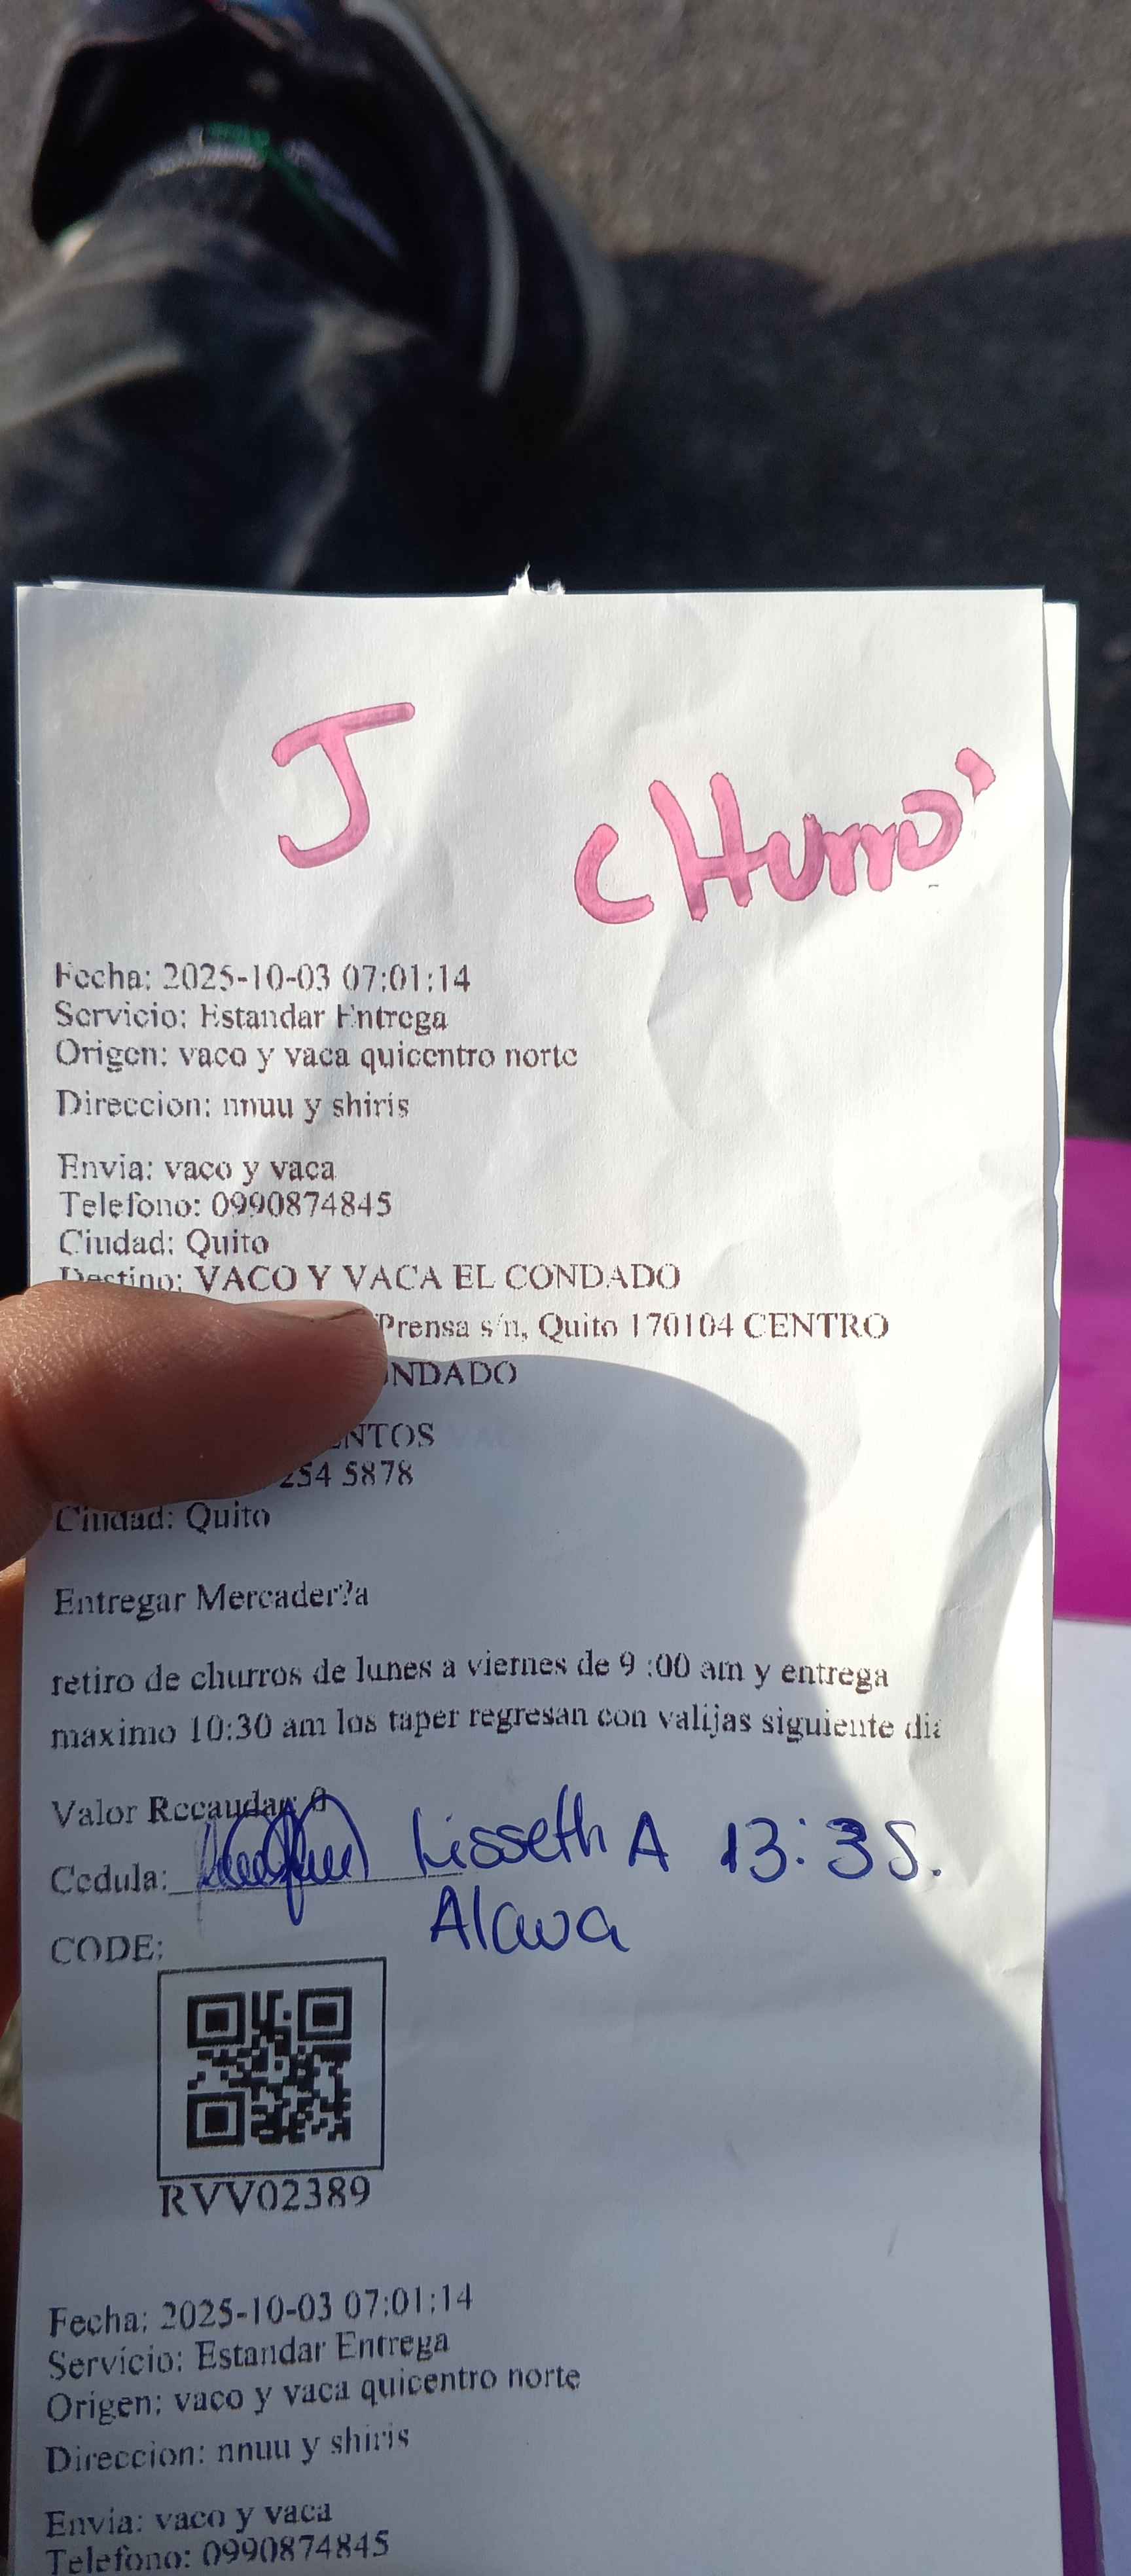 J
CHurro'
Fecha: 2025-10-03 07:01:14
Servicio: Estandar Entrega
Origen: vaco y vaca quicentro norte
Direccion: nnuu y shiris
Envia: vaco y vaca
Telefono: 0990874845
Ciudad: Quito
Destino: VACO Y VACA EL CONDADO
Prensa s/n, Quito 170104 CENTRO
254 5878
Ciudad: Quito
Entregar Mercader?a
retiro de churros de lunes a viernes de 9 :00 am y entrega
maximo 10:30 am los taper regresan con valijas siguiente dia
Valor Recaudar: 0
Cedula: Lisseth A 13:35.
Alava
CODE:
RVV02389
Fecha: 2025-10-03 07:01:14
Servicio: Estandar Entrega
Origen: vaco y vaca quicentro norte
Direccion: nnuu y shiris
Envia: vaco y vaca
Telefono: 0990874845